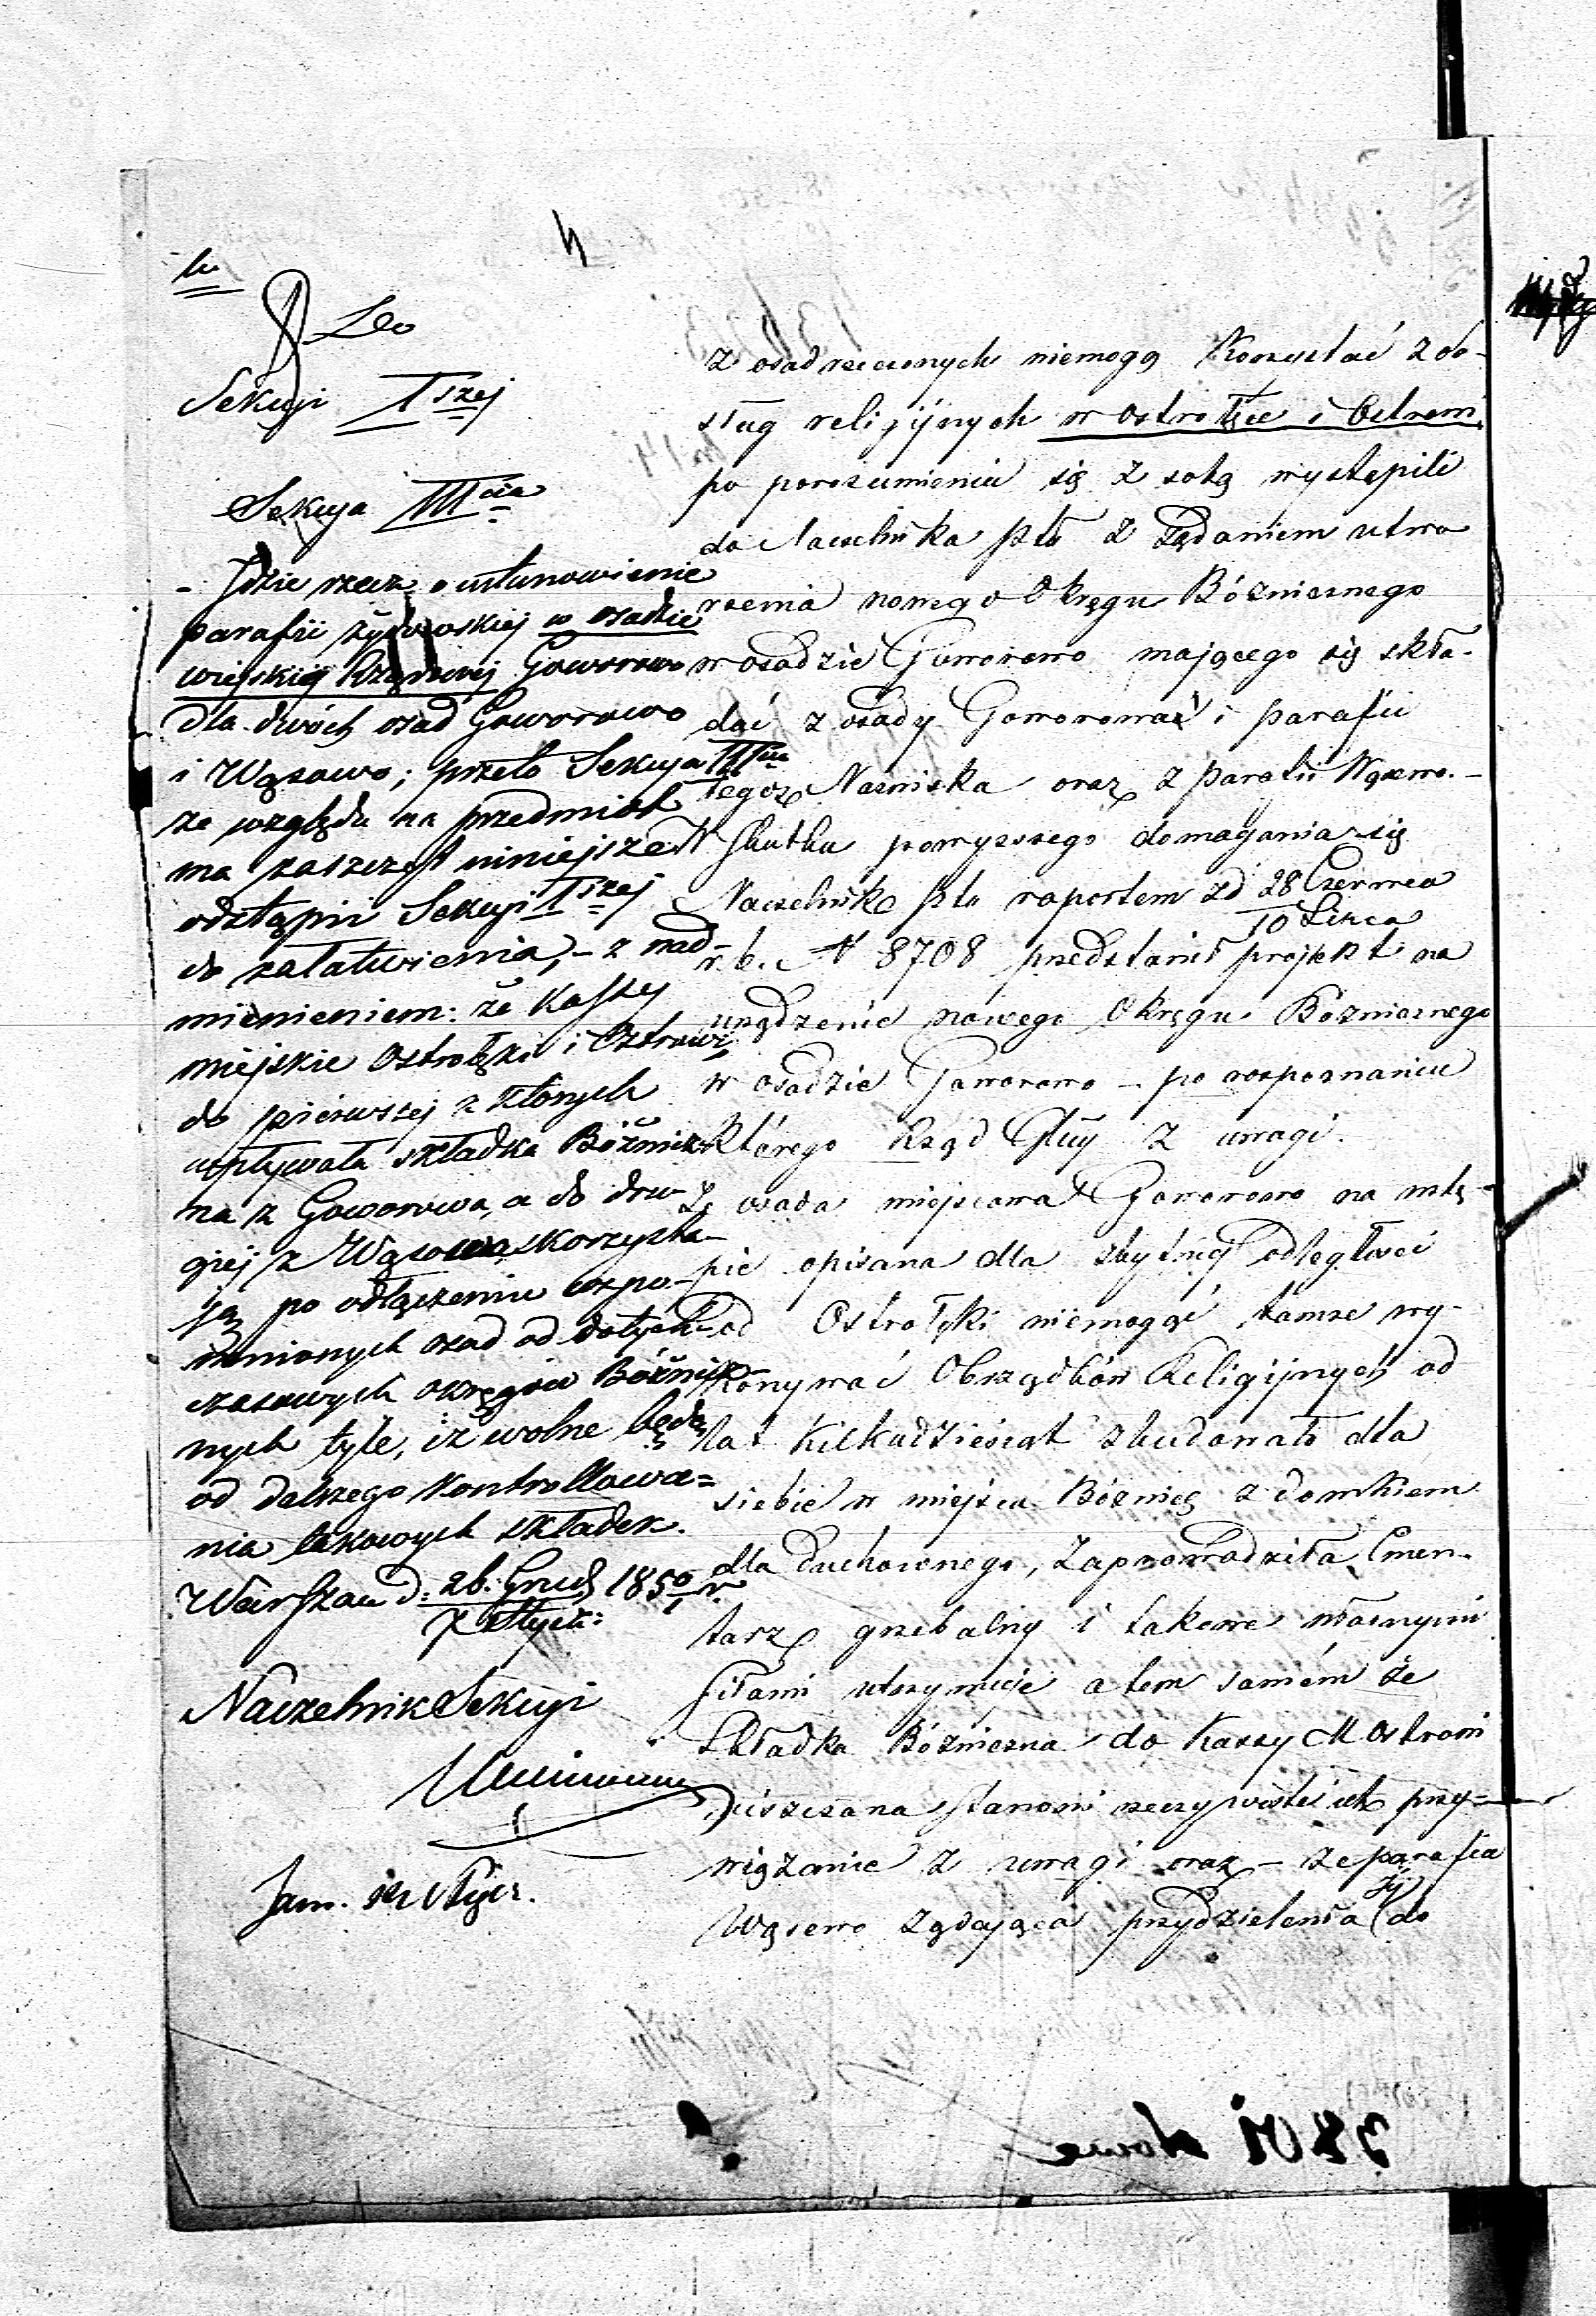 Do
Sekcyi Iszej
Sekcya IIIcia
- Idzie rzecz o ustanowienie
parafii żydowskiej w osadzie
wiejskiej Rządowej Goworowo
dla dwóch osad Goworowo
i Wąsewo; przeto Sekcya IIIcia
ze względu na przedmiot
ma zaszczyt niniejsze
odstąpić Sekcyi Iszej
do załatwienia, - z nad-
mienieniem: że Kassy
miejskie Ostrołęki i Ostrowi,
do pierwszej z których
wpływała składka Bóżnicz-
na z Goworowa, a do dru-
giej z Wąsewa, skorzysta-
ją po odłączeniu wspo-
mnionych osad od dotych-
czasowych okręgów Bóżnicz-
nych tyle, iż wolne będą
od dalszego kontrollowa=
nia takowych składek.
Warszawa d: 26. Grud 1850/1 r.
7 Stycz:
Naczelnik Sekcyi
z osad rzeczonych niemogą Korzystać z ob-
sług religijnych w Ostrołęce i Ostrowi,
po porozumieniu się z sobą wystąpili
do Naczelnika Ptu z żądaniem utwo
rzenia nowego Okręgu Bóżnicznego
w osadzie Goworowo mającego się skła-
dać z osady Goworowa i parafii
tegoż Nazwiska oraz z parafii Wąsewo. -
W skutku powyższego domagania się
Naczelnik Ptu raportem zd 28 Czerwca
10 Lipca
r. b. N 8708 przedstawił projekt na
urządzenie nowego Okręgu Bóżnicznego
w osadzie Goworowo - po rozpoznaniu
którego Rząd Gluy z uwagi.
Że osada miejscowa Goworowo na wstę-
pie opisana dla zbytniej odległości
od Ostrołęki niemogąc tamże wy-
konywać Obrządków Religijnych od
lat Kilkudziesiąt zbudowało dla
siebie w miejscu Bóżnicę z domkiem
dla Duchownego, Zaprowadziła Cmen-
tarz grzebalny i takowe własnymi
siłami utrzymuje a tem samém że
Składka Bóżniczna do Kassy M Ostrowi
uiszczana stanowi rzeczywiście ich przy=
wiązanie z uwagi oraz - że parafia
Wąsewo żądająca przydzielenia Jéj do